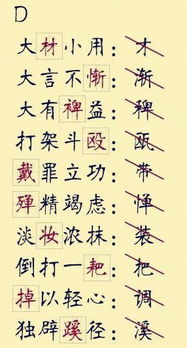 D
大材小用：木
大言不惭：渐
大有裨益：稗
打架斗殴：瓯
戴罪立功：带
殚精竭虑：惮
淡妆浓抹：装
倒打一耙：把
掉以轻心：调
独辟蹊径：溪